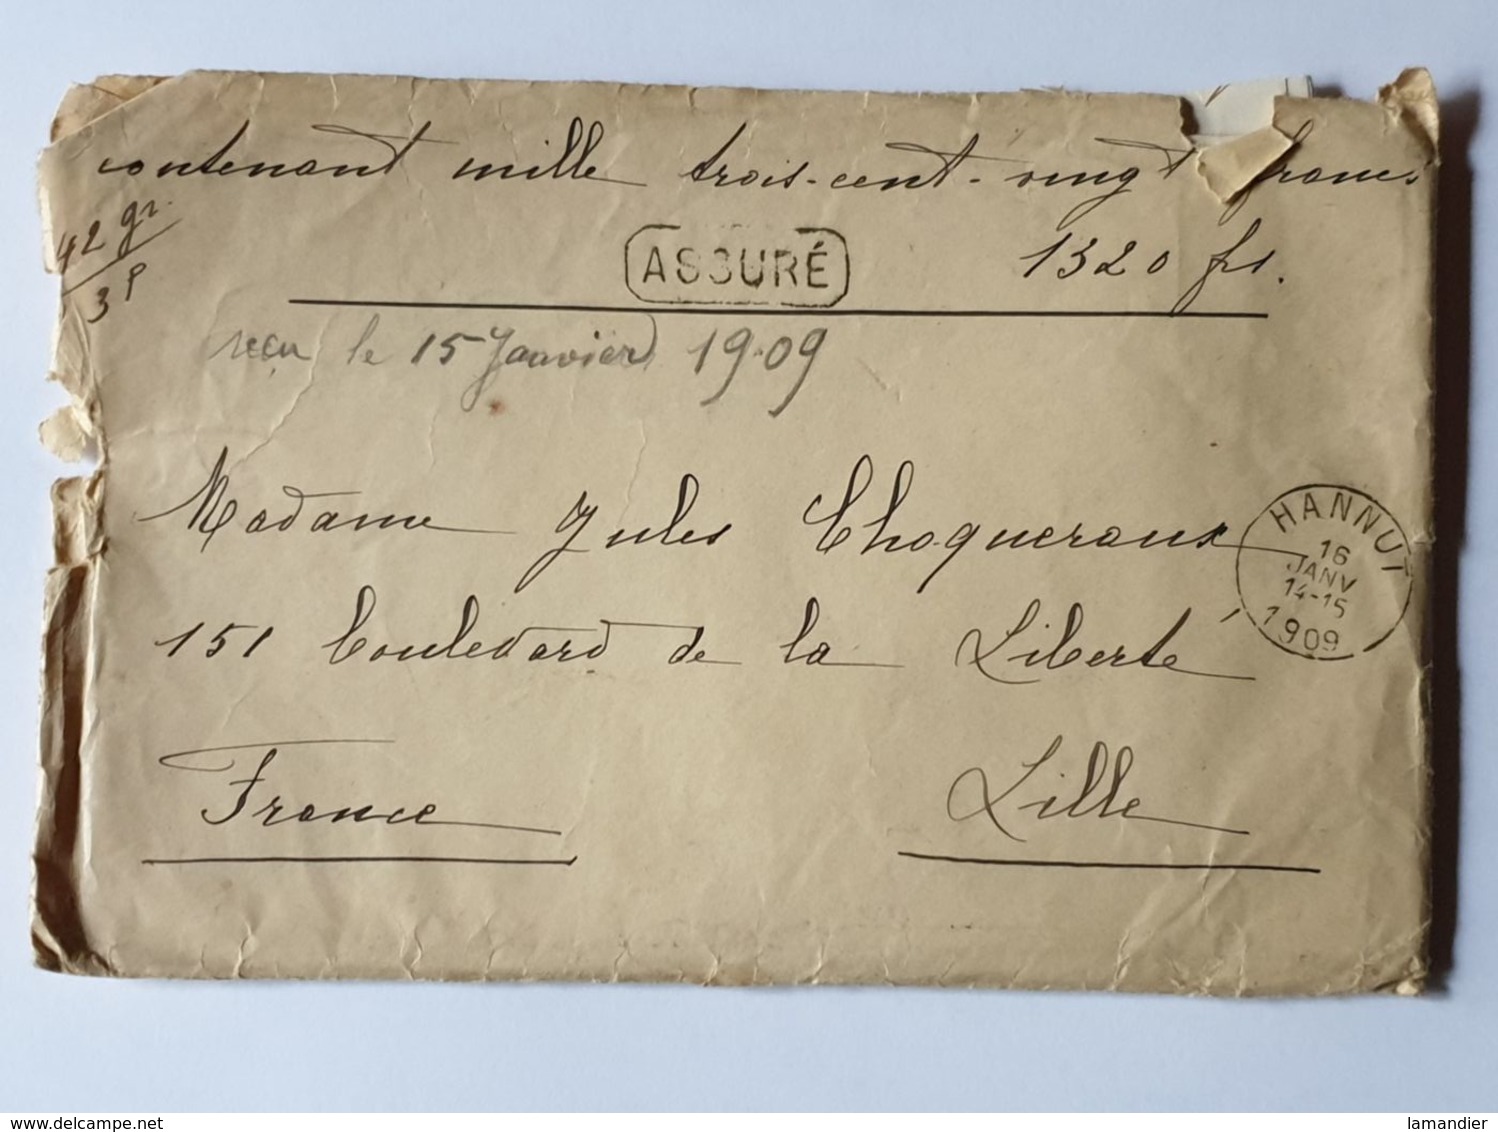 contenant mille trois-cent-vingt francs
42 gr.
3 P
ASSURÉ
1320 frs.
reçu le 15 Janvier 1909
Madame Jules Choqueraux,
HANNUT
16
JANV
14-15
1909
151 boulevard de la Liberté
France
Lille
www.delcampe.net
lamandier